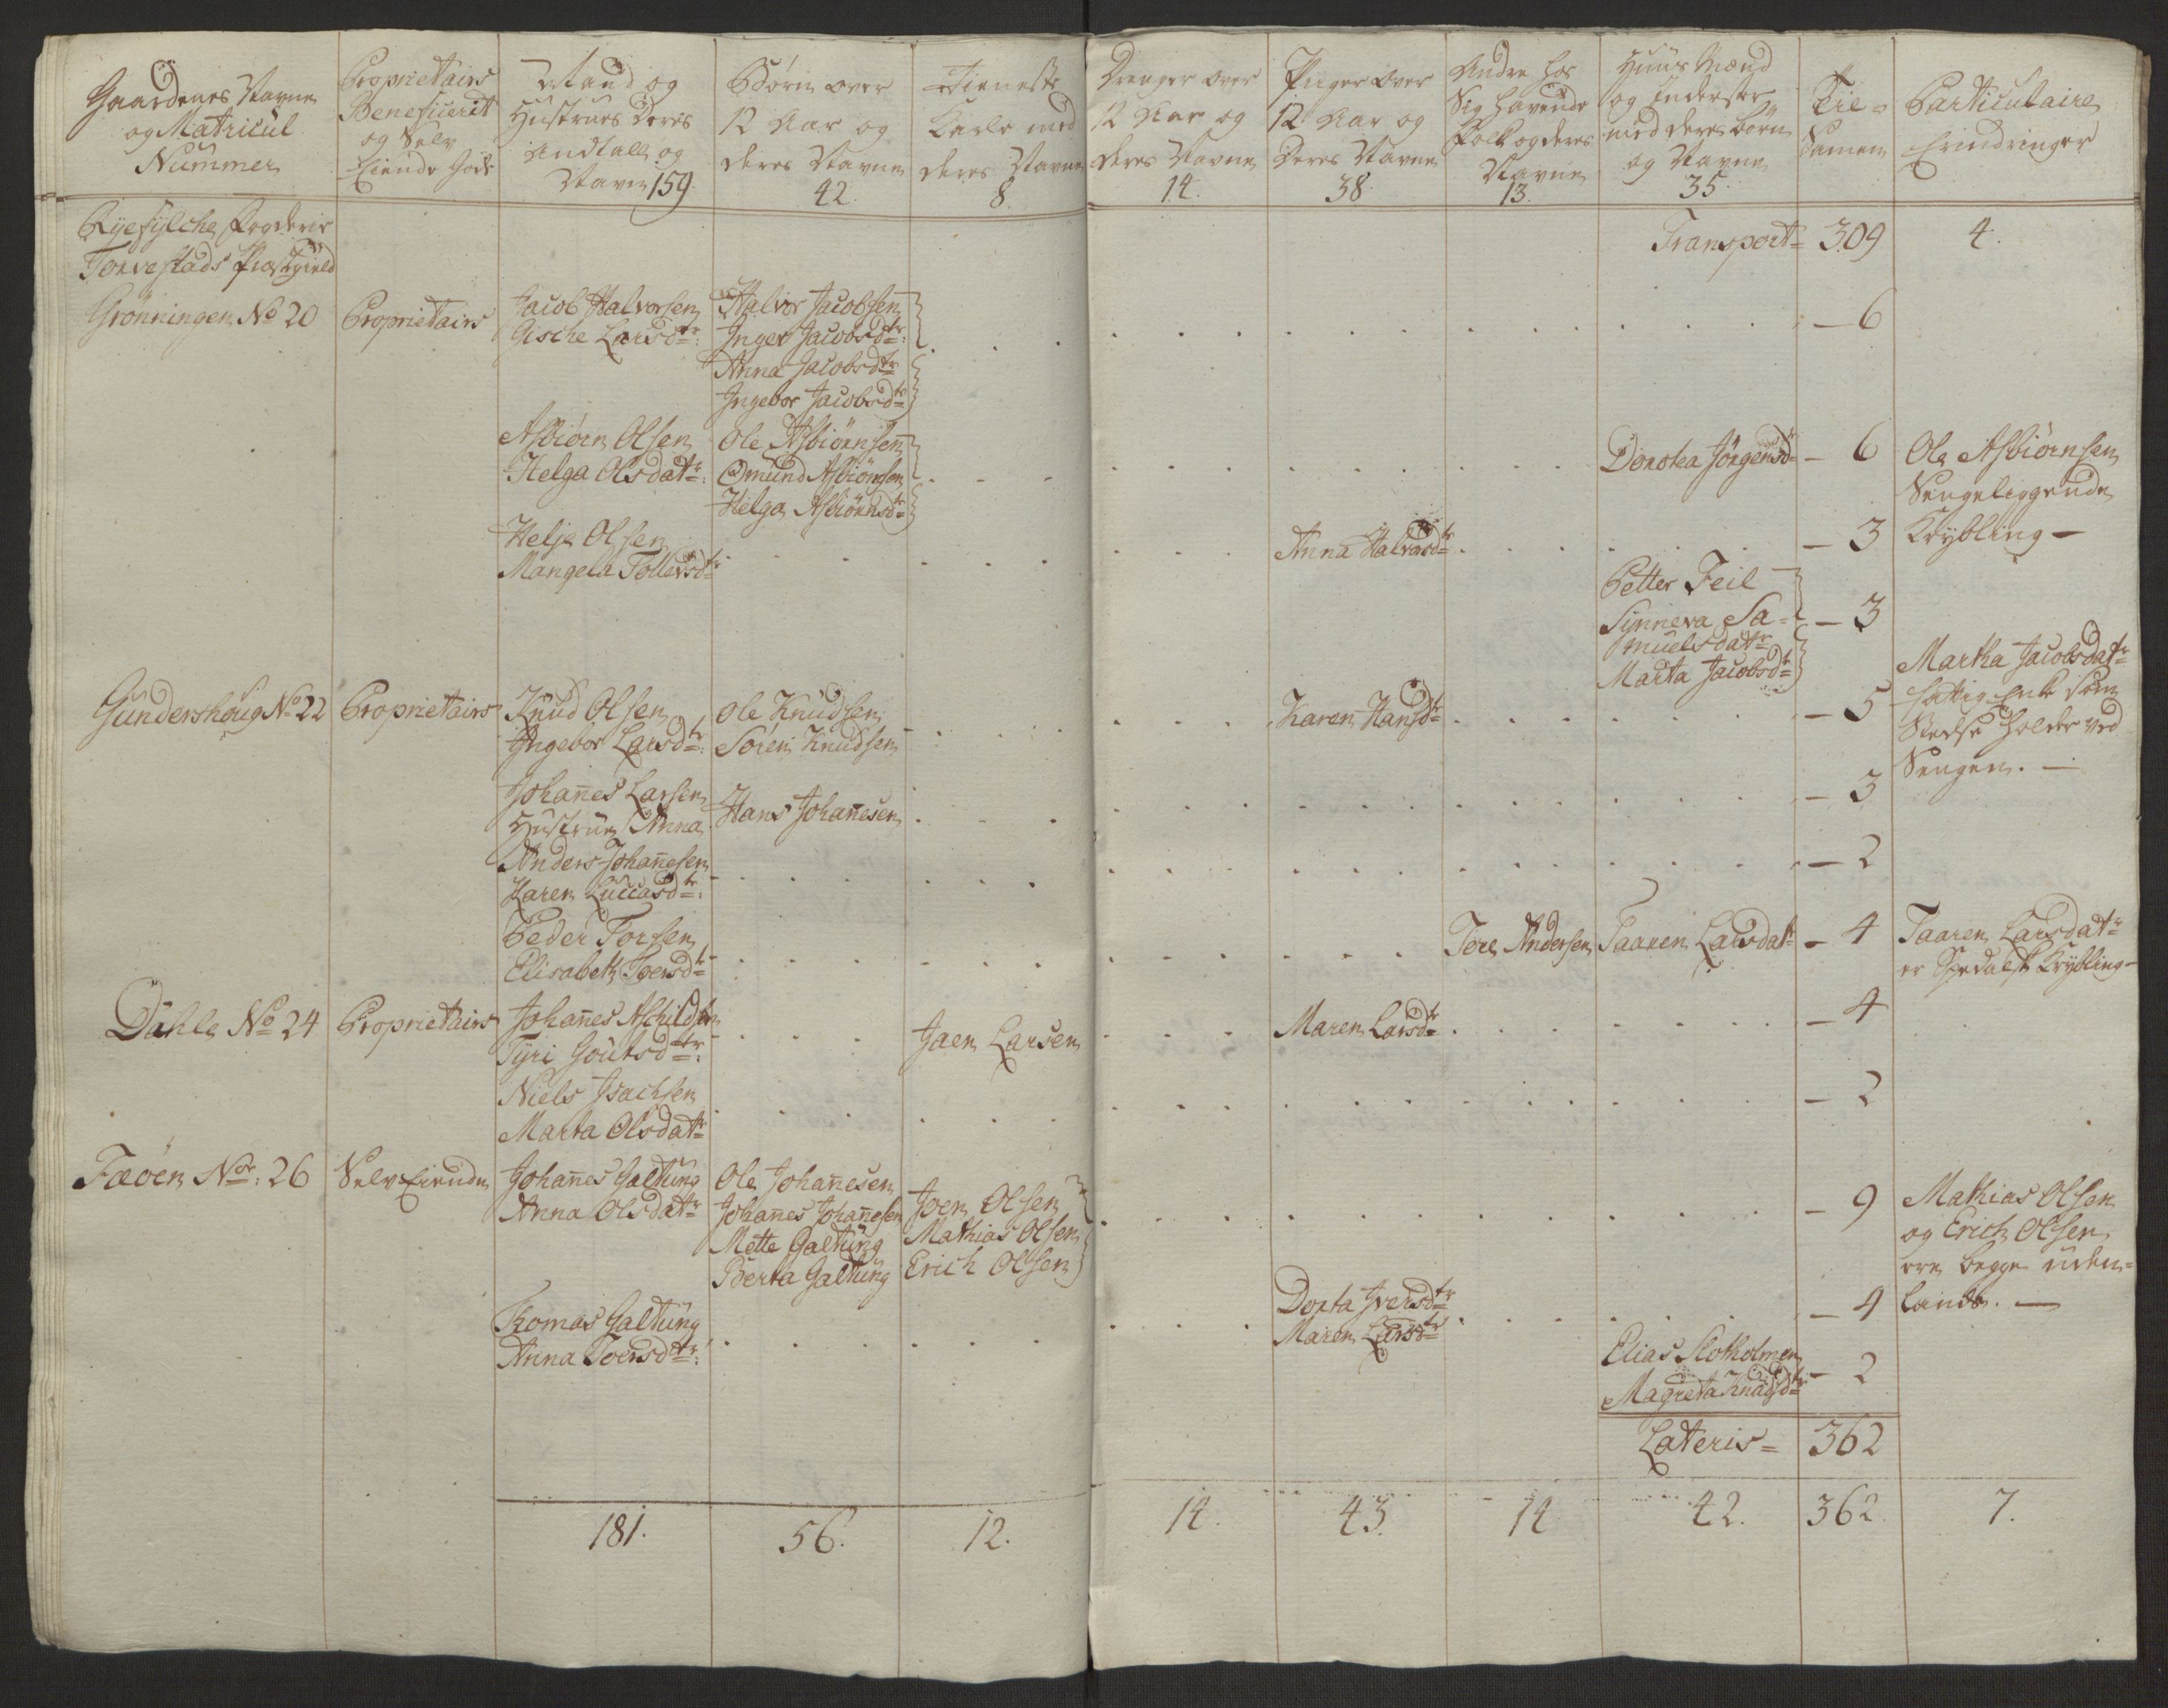 Gaardenes Navne
og Matricul
Nummer
Proprietairs
Beneficerit
og Selv
Eiende Gods
Mand og
Hustrues Deres
Andtall og
Navn 159.
Børn over
12 Aar og
deres Navne
42.
Tieneste
Karle med
deres Navne
8.
Drenger over
12 Aar og
deres Navne
14.
Piger over
12 Aar og
Deres Navne
38.
Andre hos
Sig havende
Folk og deres
Navne
13.
Huus Mænd
og Inderster
med deres børn
og Navne
35.
Til=
Samen
Particulaire
Erindringer
Ryefylche Fogderie
Torvestads Præstegield
Transport= 309 4.
Grønningen No 20 Proprietairs
Jacob Halvorsen
Gische Larsdtr:
Halvor Jacobsen
Inger Jacobsdtr:
Anna Jacobsdtr
Ingebor Jacobsdtr
— 6
Asbiørn Olsen
Helga Olsdatr:
Ole Asbiørnsen
Omund Asbiørnsen
Helga Asbiørnsdtr
Dorotea Jörgensdtr — 6
Ole Asbiørnsen
Sengeliggende
Krybling —
Helje Olsen
Mangela Tollevsdtr
Anna Halvorsdtr
— 3
Petter Feil
Synneva Sa=
muelsdatr
Marta Jacobsdtr
— 3
Martha Jacobsdatr
fattig Enke som
Stedse holder ved
Sengen. —
Gundershoug No 22 Proprietairs
Knud Olsen
Ingebor Larsdtr:
Ole Knudsen
Søren Knudsen
Karen Hansdtr
— 5
Johañes Larsen
Hustrue Anna
Hans Johañesen
— 3
Anders Johañesen
Karen Luccasdtr:
— 2
Peder Torsen
Elisabeth Toersdtr
Tore Andersen
Taaren Larsdatr
— 4
Taaren Larsdatr
er Spedalsk Krybling —
Dahle No 24 Proprietairs
Johañes Aschildsen
Tyri Goutsdtr:
Jaen Larsen
Maren Larsdtr
— 4
Niels Isachsen
Marta Olsdatr
— 2
Fæøen Nor: 26 Selv Eiende
Johañes Galtung
Anna Olsdatr
Ole Johañesen
Johañes Johañesen
Mette Galtung
Berta Galtung
Joen Olsen
Mathias Olsen
Erich Olsen
— 9
Mathias Olsen
og Erich Olsen
ere begge uden=
lands. —
Thomas Galtung
Anna Toersdtr:
Dorta Iversdtr
Maren Larsdtr
— 4
Elias Slotholmen
Magreta Knudsdtr
— 2
Lateris= 362
181. 56. 12. 14. 43. 14 42. 362. 7.